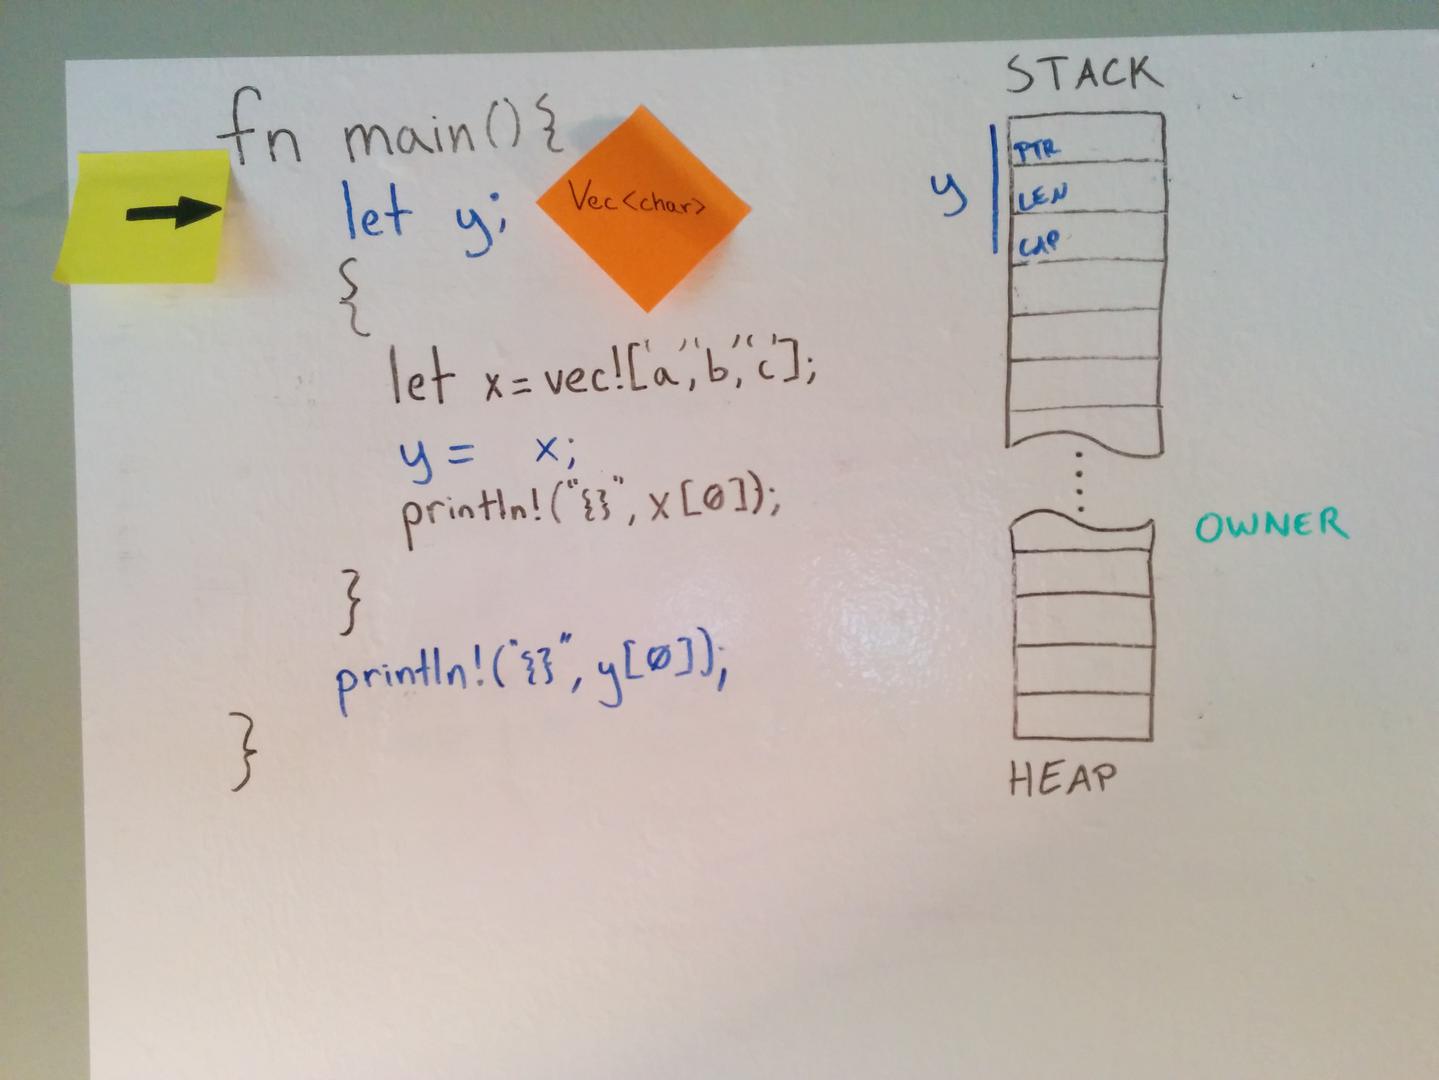 fn main(){
let y;
Vec<char>
{
let x=vec!['a','b','c'];
y= x;
println!("{}", x[0]);
}
println!("{}", y[0]);
}
STACK
y
PTR
LEN
CAP
OWNER
HEAP